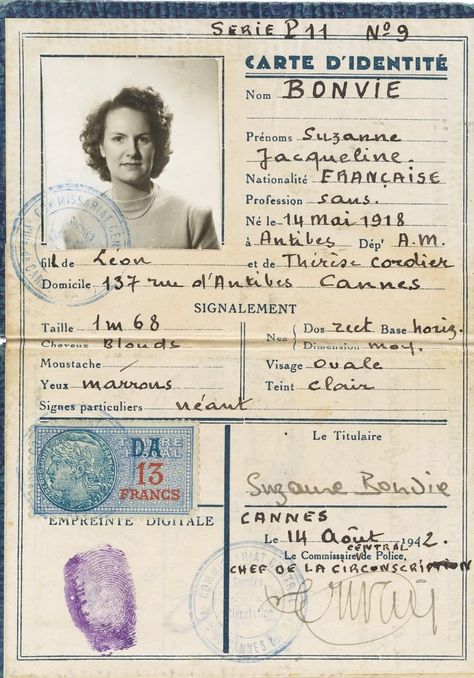 SERIE P 11 Nº 9
CARTE D'IDENTITÉ
Nom BONVIE
Prénoms Suzanne
Jacqueline.
Nationalité FRANÇAISE
Profession sans.
Né le 14 Mai 1918
à Antibes Dépt A.M.
fil de Léon et de Thérèse Cordier
Domicile 137 rue d'Antibes Cannes
SIGNALEMENT
Taille 1m68
Cheveux Blonds
Moustache
Yeux marrons
Signes particuliers néant
Nez Dos rect Base horiz.
Dimension moy.
Visage ovale
Teint clair
D.A
13
FRANCS
EMPREINTE DIGITALE
Le Titulaire
Suzanne Bonvie
CANNES
Le 14 Août 1942.
CENTRAL
Le Commissaire de Police,
CHEF DE LA CIRCONSCRIPTION